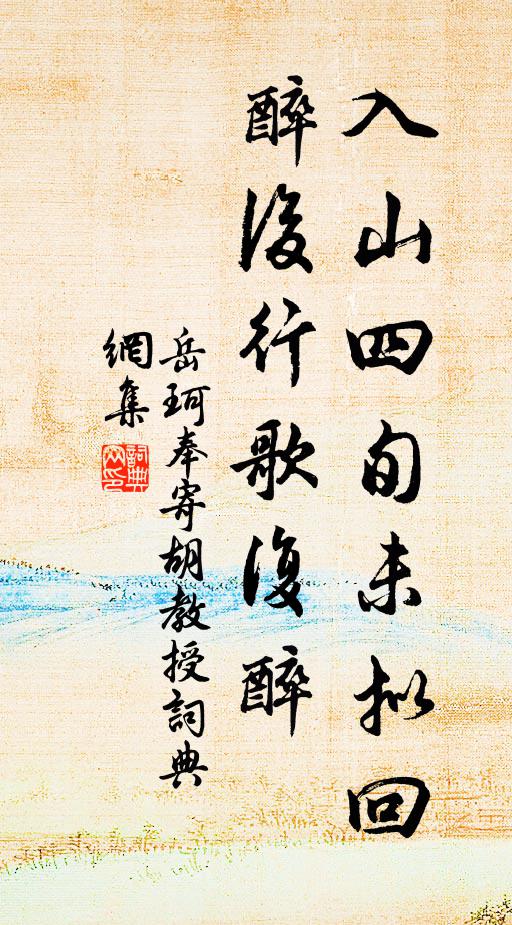 入山四旬未拟回
醉后行歌復醉
岳珂奉寄胡教授詞典
網集
詞典
网印